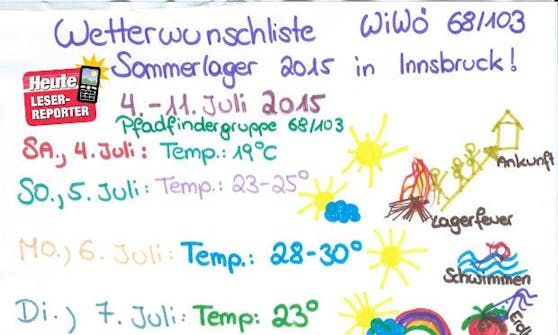 Wetterwunschliste WiWö 68/103
Sommerlager 2015 in Innsbruck!
Heute
LESER-
REPORTER
4.-11. Juli 2015
Pfadfindergruppe 68/103
SA., 4. Juli: Temp.: 19°C
Ankunft
SO., 5. Juli: Temp.: 23-25°
Lagerfeuer
MO., 6. Juli: Temp.: 28-30°
Schwimmen
Di., 7. Juli: Temp: 23°